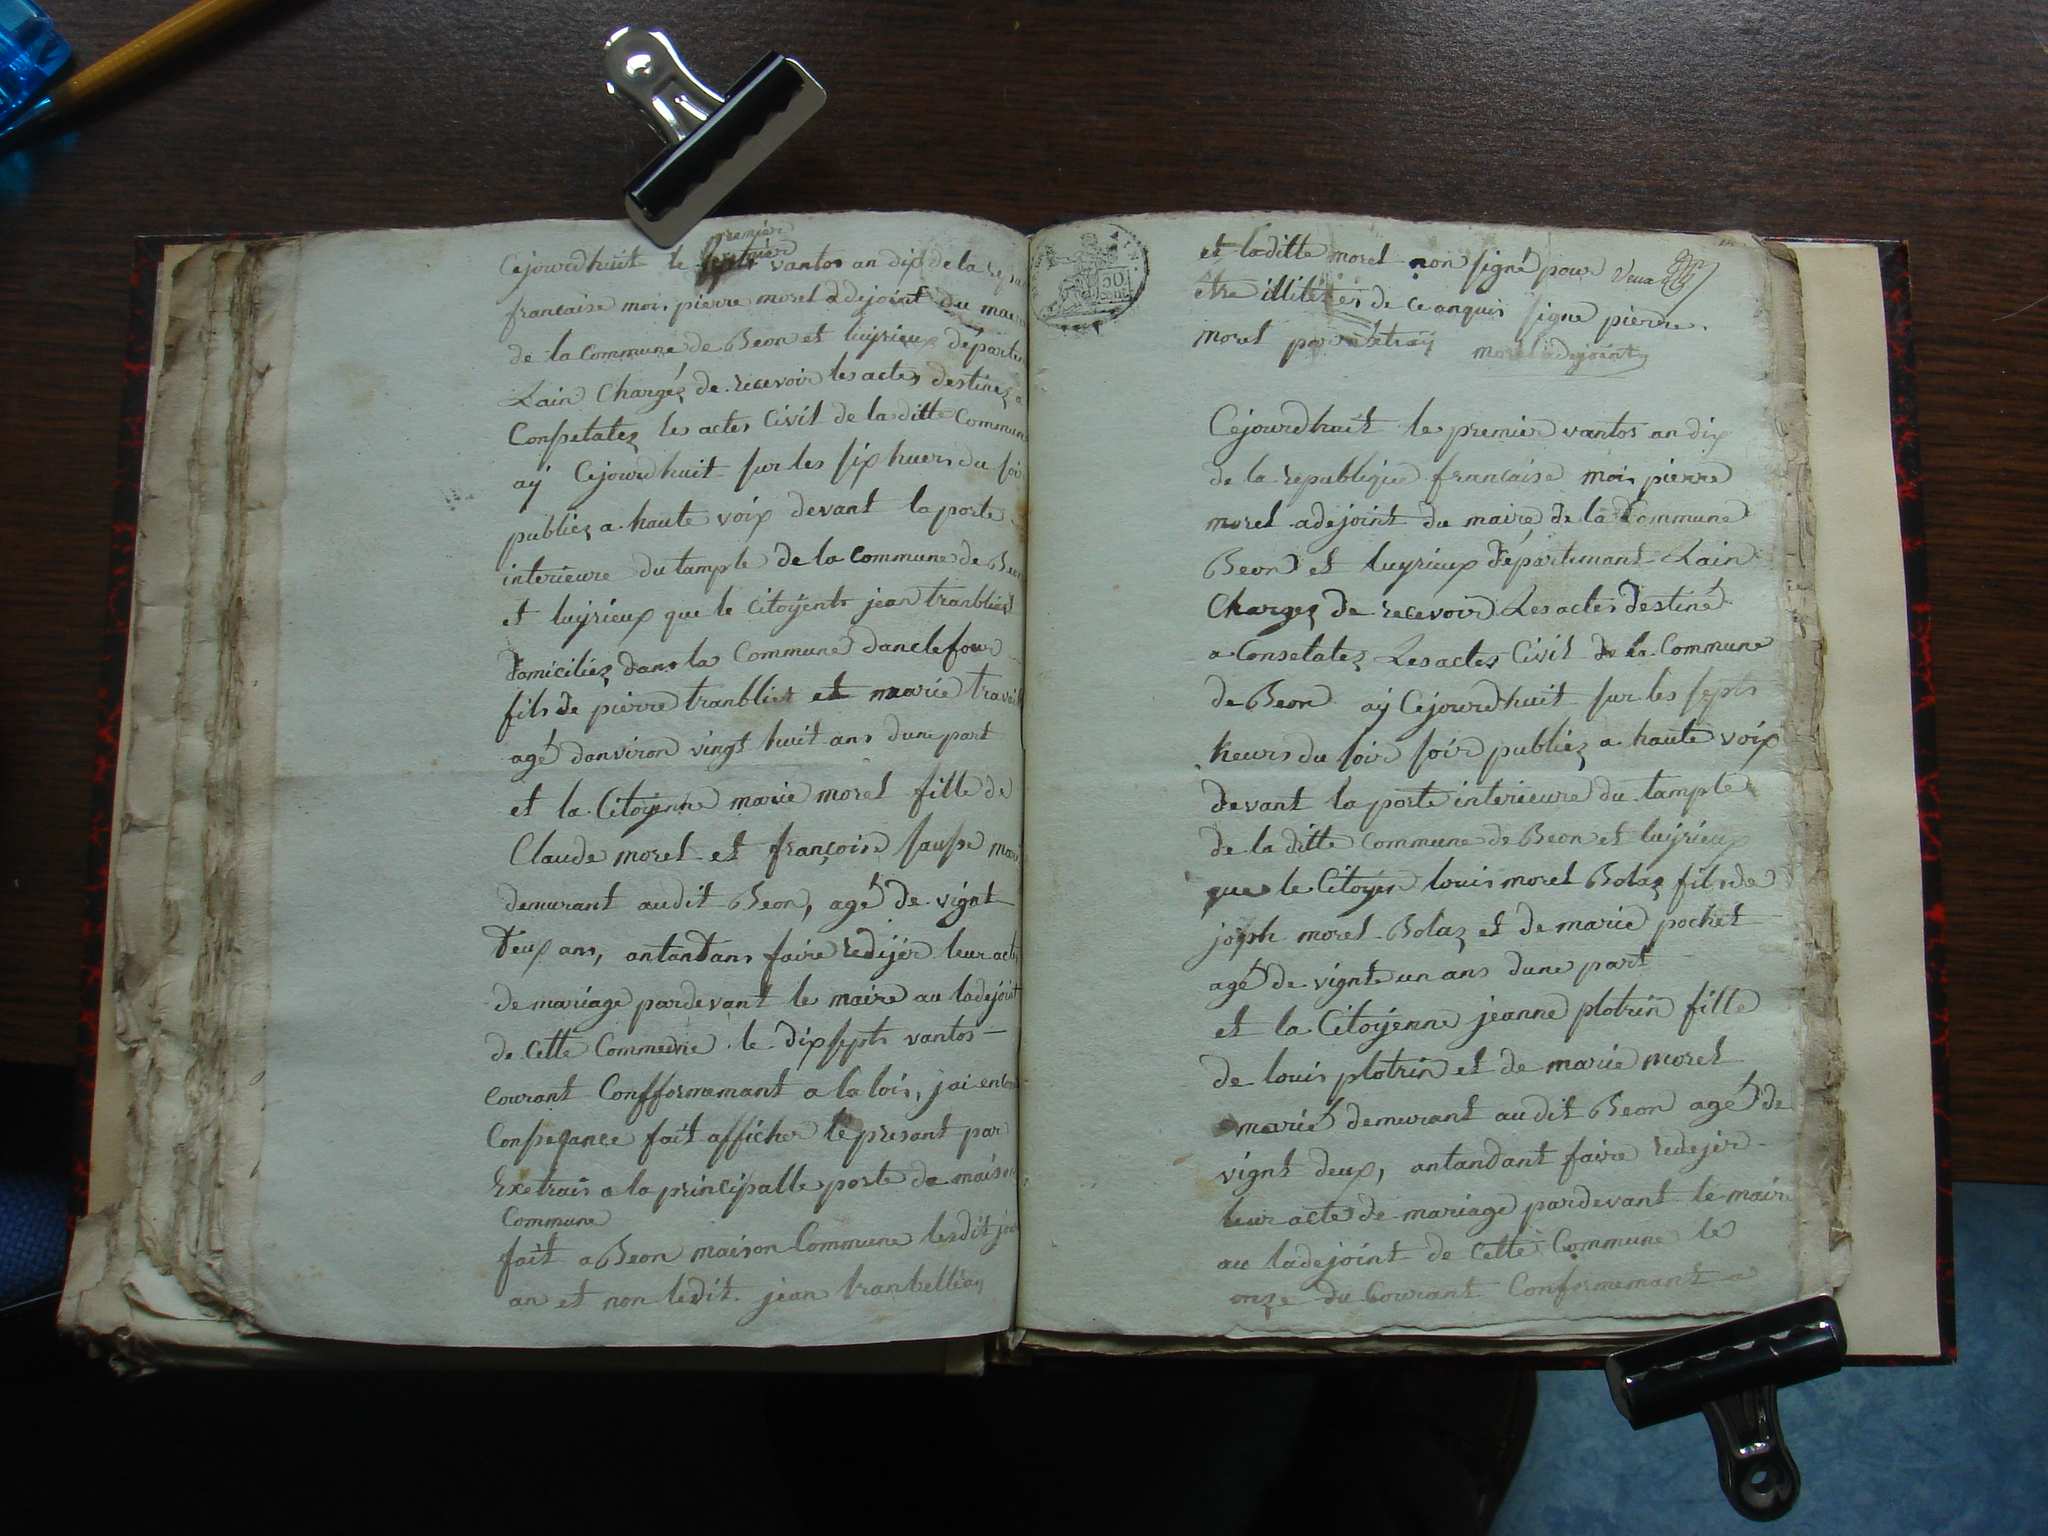 premier
Cejourdhuit le vantos an dix de la repu
francaise moi pierre morel adejoint du mae
de la Commune de Beon et luyrieux départe
Lain Chargéz de recevoir les actes destinez a
Consetatez les actes Civil de la ditte Commun
aÿ Cejourdhuit sur les six huers du soi
publiéz a haute voix devant la porte
interieure du tample de la Commune de Beon
et luyrieux que le Citoyents jean tranblier
domiciliéz dans la Commune danclefour
fils de pierre tranblier et marie
agé danviron vingt huit ans dune part
et la Citoyenne marie morel fille de
Claude morel et françoise sausse mar
demurant audit Beon, agé de vignt
deux ans, antandans faire redijér leur acte
de mariage pardevant le maire au ladejoint
de Cette Commune le dix septs vantos
courant Confformemant a la lois, jai en
Conseqance fait afficher le presant par
Exetrais a la principalle porte da maison
Commune
fait a Beon maison Commune lesdit jou
an et non ledit jean
et laditte morel non signé pour
etre illiteres de ceanquis signe pierre
morel
morel adejoint
50
cent
Cejourdhuit le premier vantos an dix
de la republique francaise moi pierre
morel adejoint du maire de la Commune
Beon et luyrieux départemant Lain
Chargez de recevoir Les actes destiné
a Consetatez Les actes Civil de la Commune
de Beon aÿ Cejourdhuit sur les septs
heurs du soir soir publiéz a haute voix
devant la porte interieure du tample
de la ditte Commune de Beon et luyrieux
que le Citoyen louis morel Bolaz fils de
joph morel Bolaz et de marie pochet
agé de vignt un ans dune part
et la Citoyenne jeanne plotrin fille
de louis plotrin et de marie morel
marié demurant audit Beon agé de
vignt deux, antandant faire redejér
leur acte de mariage pardevant le maire
au ladejoint de Cette Commune le
onze du Courant Conformemant a